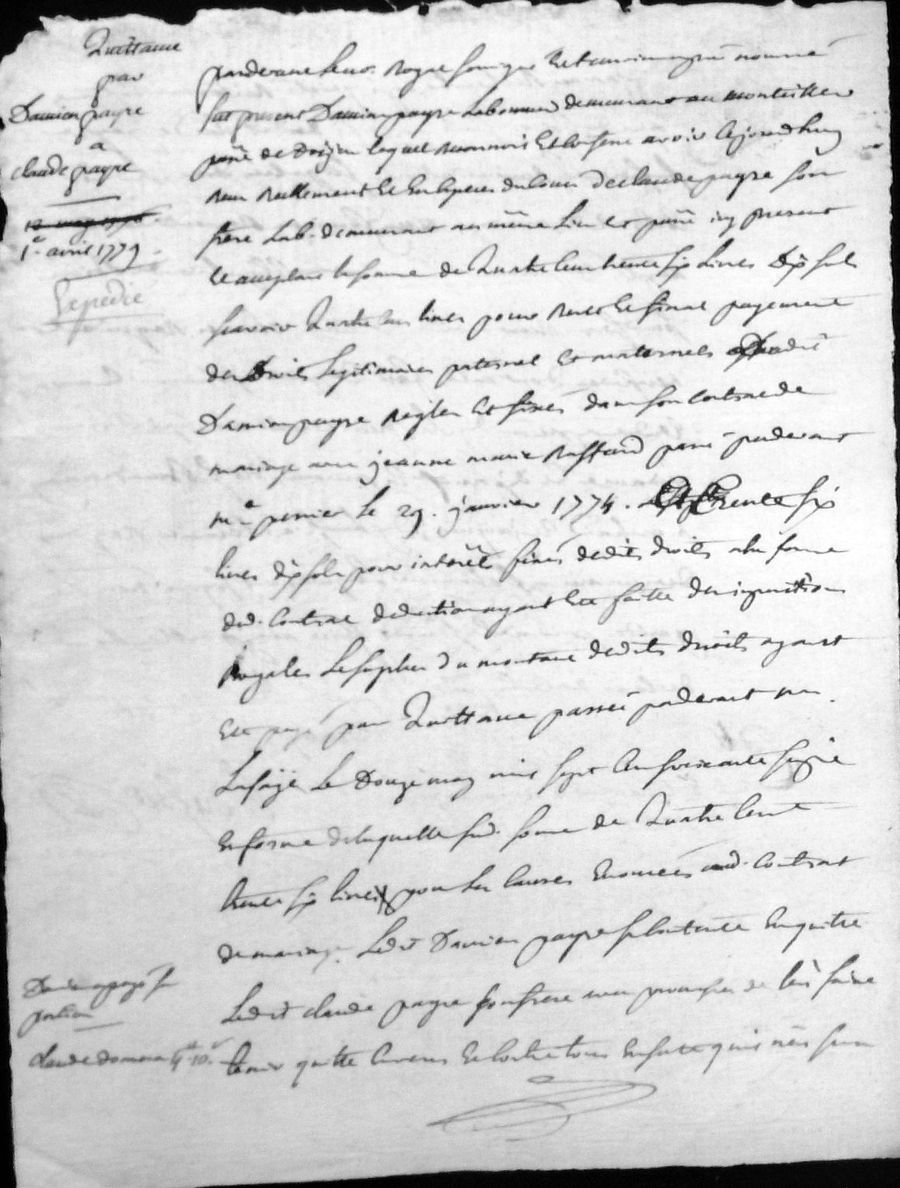 Quittance
par
Damien payre
a
claude payre
12 may 1776
1er avril 1779
Expedié
pardevant le no.re Royal soussigné et temoins apres nommés
fut present Damien payre laboureur demeurant au monteillier
parr.e de lequel reconnoit et confesse avoir aujourd'huy
reçu reellement et en especes du cours de claude payre son
frere lab. demeurant au même lieu et parr.e icy present
et acceptant la somme de Quatre cent trente six livres dix sols
scavoir Quatre cent livres pour reste et final payement
des Droits legitimaires paternel et maternels dudit
Damien payre reglés et fixés dans son contract de
mariage avec jeanne marie passé pardevant
m.e le 29. janvier 1774. Et Trente six
livres dix sols pour interêts fixés desdits droits a la forme
dud. contrat deduction ayant eté faitte des impositions
Royales Le surplus du montant desdits droits ayant
eté payé par Quittance passée pardevant me.
Lafaÿe Le Douze may mil sept cent soixante seize
en forme de laquelle sud. somme de Quatre cent
trente six livres pour les causes enoncées aud. contrat
de mariage. Ledit Damien payre se contente en quitte
Ledit claude payre son frere avec promesse de l'en faire
tenir quitte envers et contre tous ensorte qu'il n'en sera
Damien payre
claude